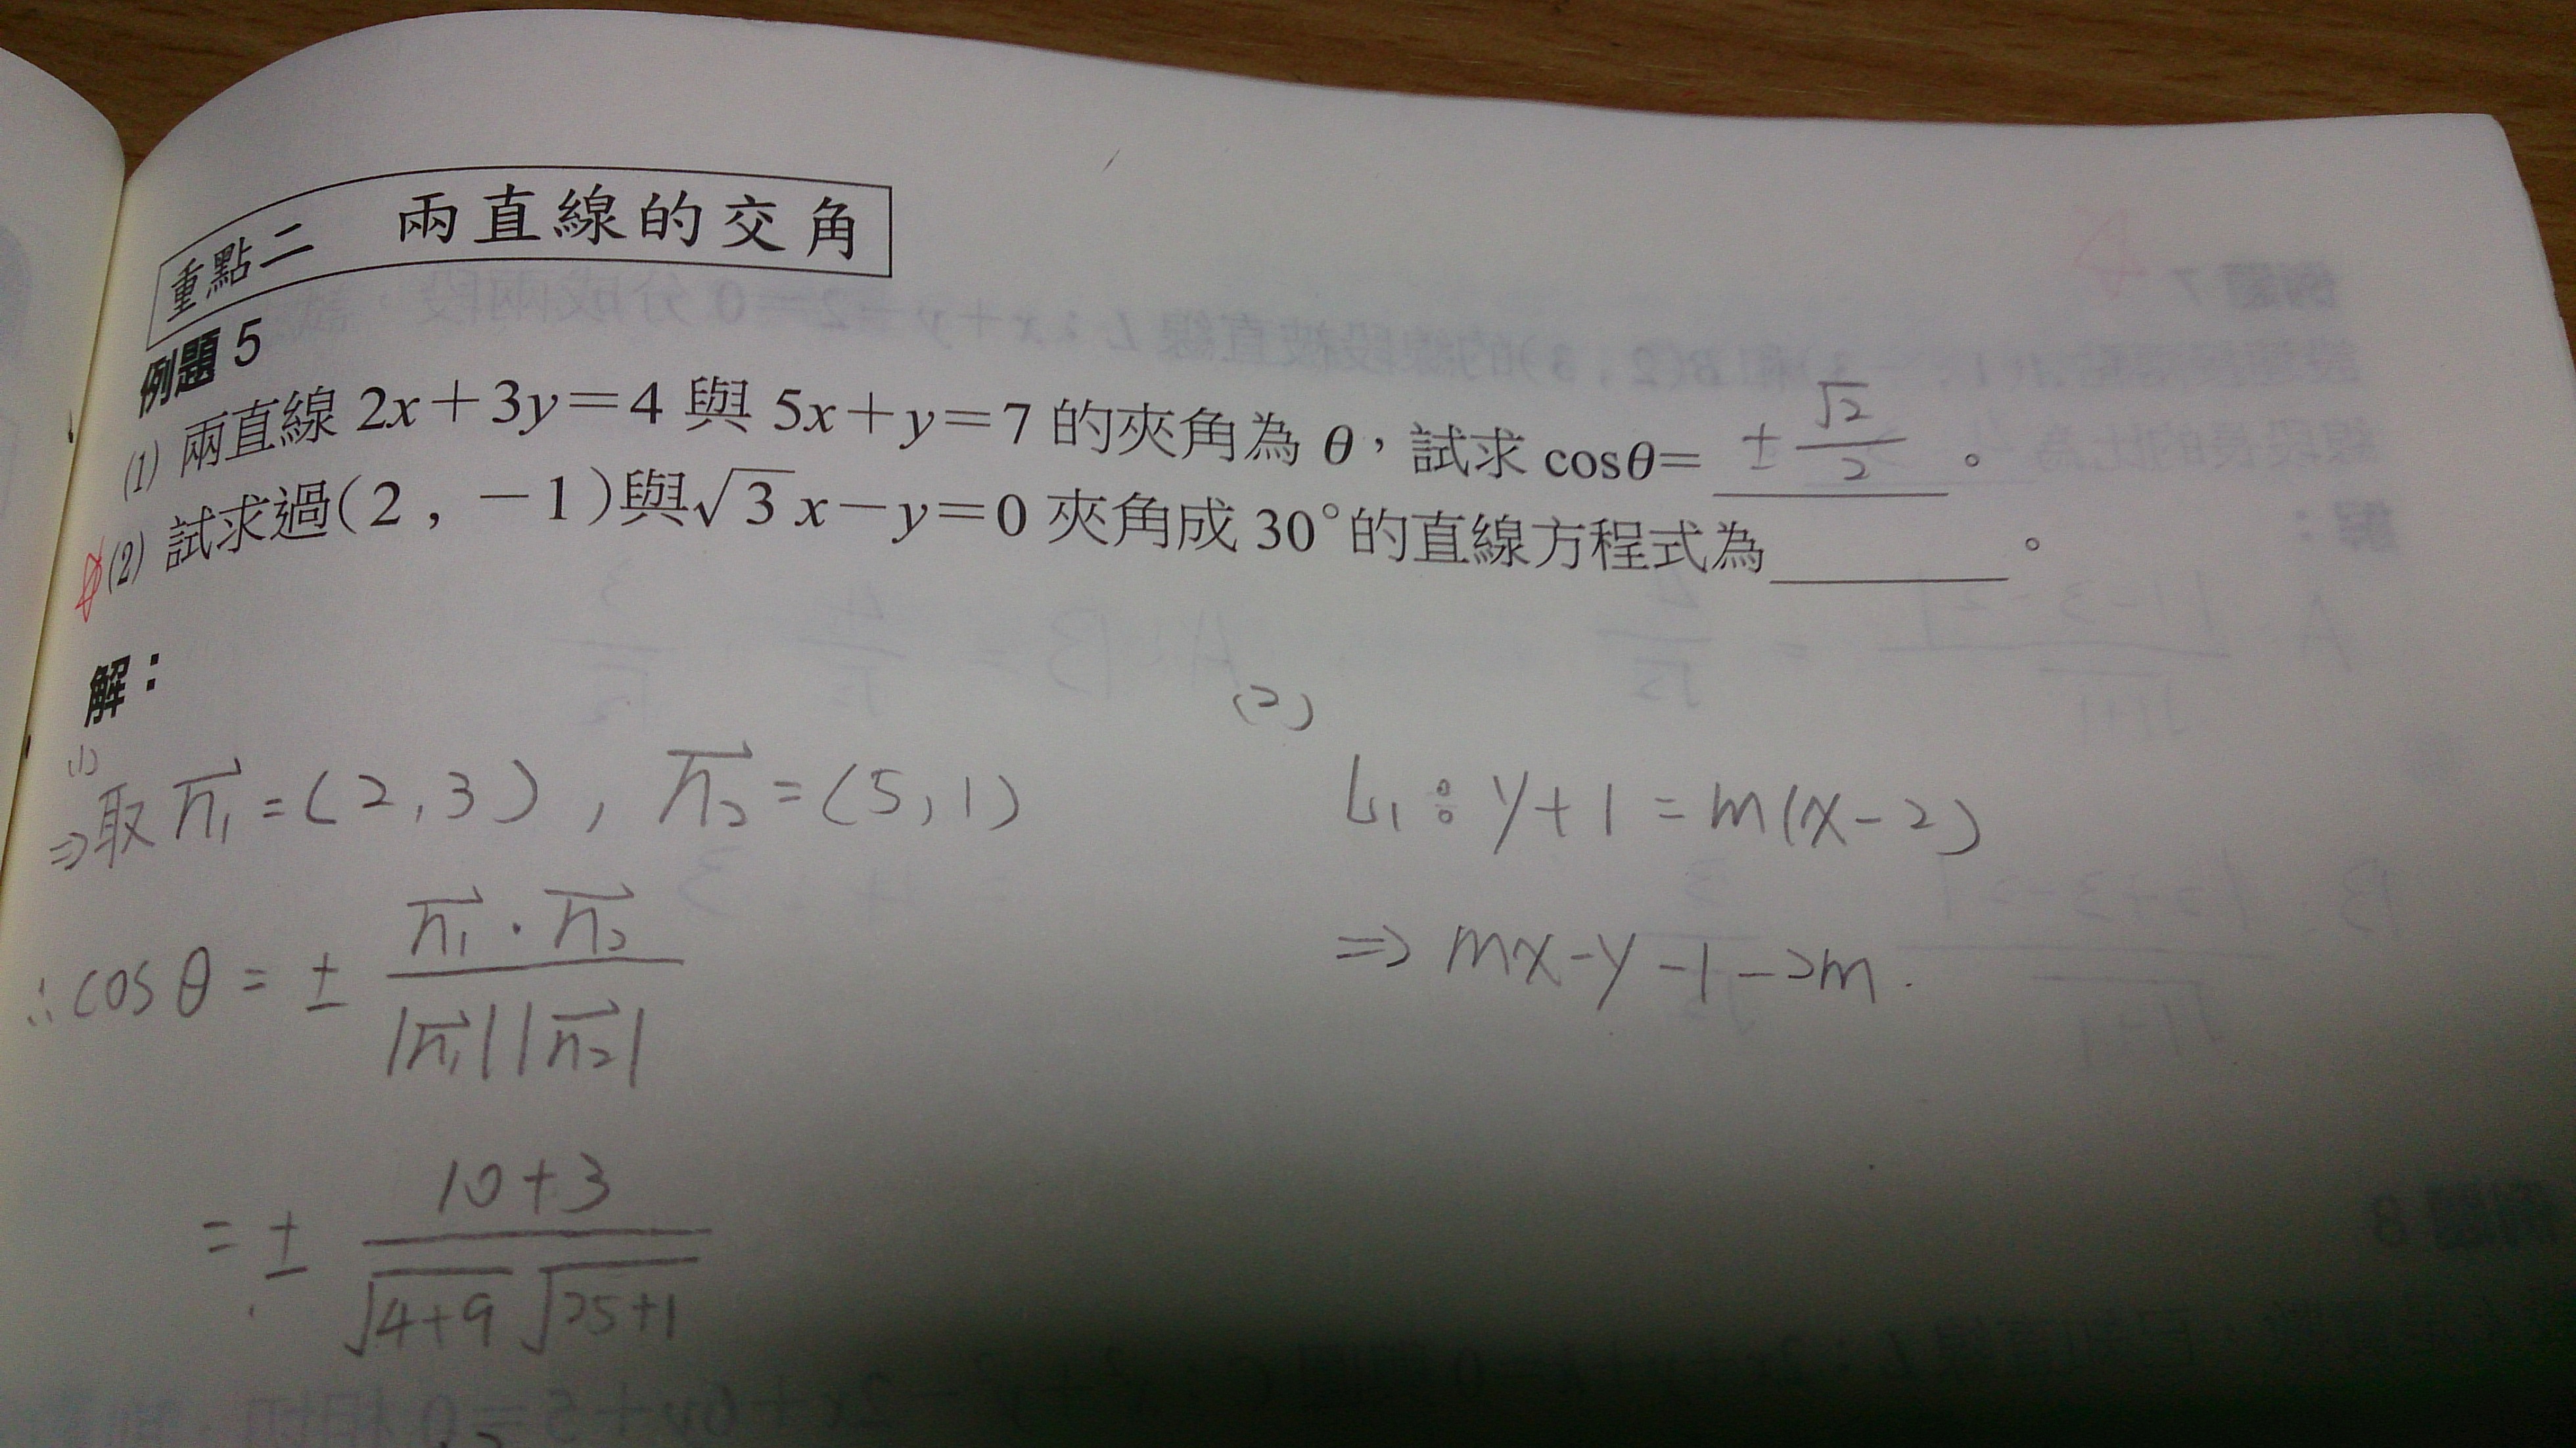 重點二 兩直線的交角
例題 5
(1) 兩直線 2x+3y=4 與 5x+y=7 的夾角為 θ，試求 cosθ= ± √2/2 。
(2) 試求過(2，－1)與√3x－y=0 夾角成 30°的直線方程式為______。
解：
(1)
⇒取 n₁⃗ = (2,3) , n₂⃗ = (5,1)
∴cosθ = ± n₁⃗·n₂⃗ / |n₁⃗||n₂⃗|
= ± 10+3 / √4+9 √25+1
(2)
L₁：y+1=m(x-2)
⇒ mx-y-1-2m.